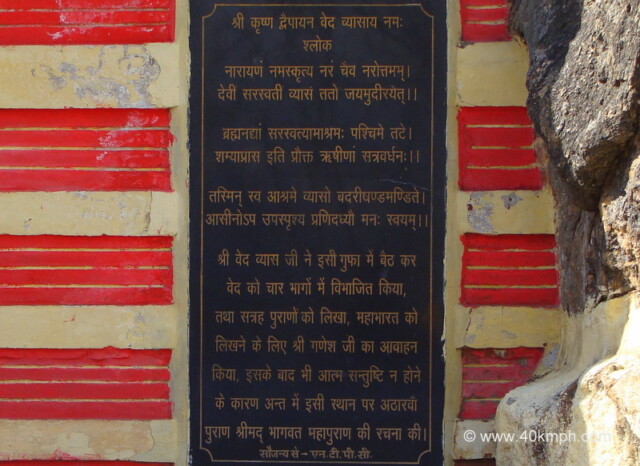 श्री कृष्ण द्वैपायन वेद व्यासाय नमः
श्लोक
नारायणं नमस्कृत्य नरं चैव नरोत्तमम्।
देवीं सरस्वतीं व्यासं ततो जयमुदीरयेत्।।
ब्रह्मनद्यां सरस्वत्यामाश्रमः पश्चिमे तटे।
शम्याप्रास इति प्रौक्त ऋषीणां सत्रवर्धनः।।
तस्मिन् स्व आश्रमे व्यासो बदरीषण्डमण्डिते।
आसीनोऽप उपस्पृश्य प्रणिदध्यौ मनः स्वयम्।।
श्री वेद व्यास जी ने इसी गुफा में बैठ कर
वेद को चार भागों में विभाजित किया,
तथा सत्रह पुराणों को लिखा, महाभारत को
लिखने के लिए श्री गणेश जी का आवाहन
किया, इसके बाद भी आत्म सन्तुष्टि न होने
के कारण अन्त में इसी स्थान पर अठारवाँ
पुराण श्रीमद् भागवत महापुराण की रचना की।
सौजन्य से – एन.टी.पी.सी.
© www.40kmph.com